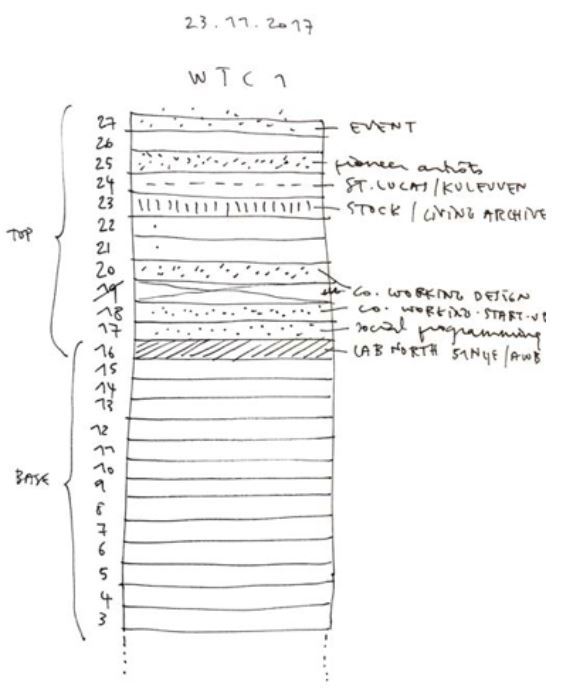 23.11.2017
WTC 1
27 EVENT
26
25 pioneer artists
24 ST. LUCAS/KULEUVEN
23 STOCK / LIVING ARCHIVE
22
TOP
21
20
19 CO. WORKING DESIGN
18 CO. WORKING START-U
17 social programming
16 LAB NORTH 51N4E/AWB
15
14
13
12
11
10
BASE
9
8
7
6
5
4
3